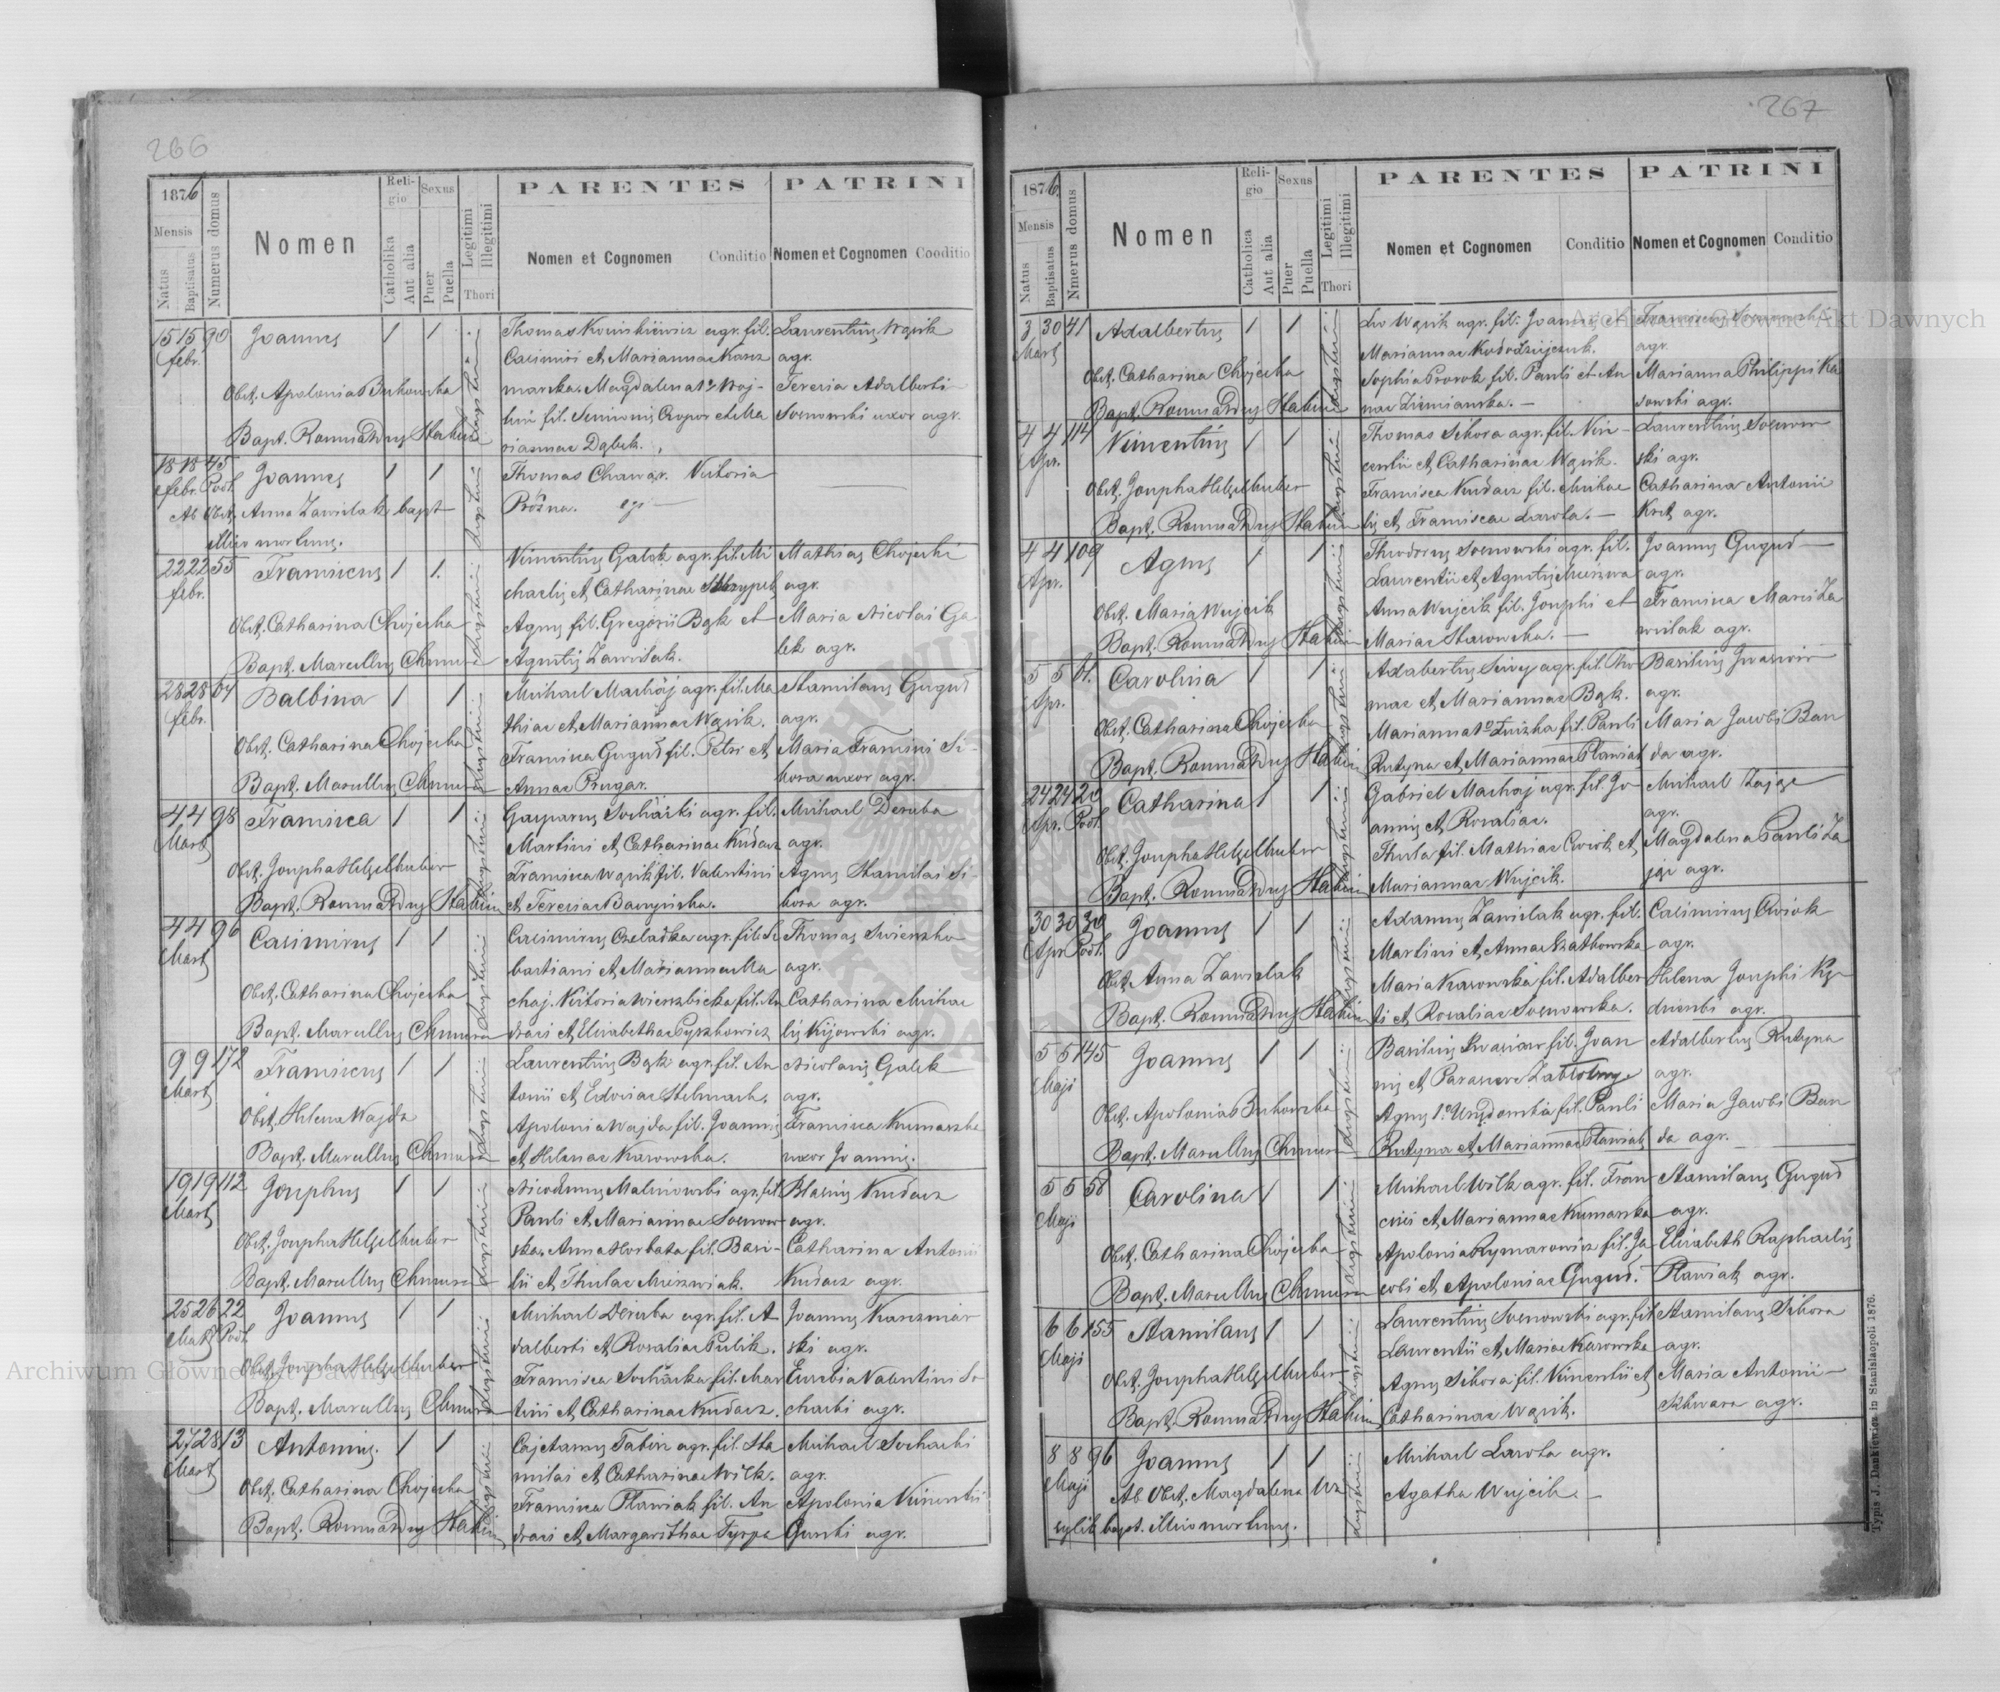 266
1876
Mensis
Natus
Baptisatus
Numerus domus
Nomen
Religio
Catholika
Aut alia
Sexus
Puer
Puella
Legitimi
Illegitimi
Thori
PARENTES
Nomen et Cognomen
Conditio
PATRINI
Nomen et Cognomen
Cooditio
15 15 90 Joannes 1 1
febr.
Obst. Apolonia Bukowska
Bapt. Romualdus
Casimiri et Mariannae
agr.
Teresia Adalberti
Sosnowski uxor agr.
riannae Dąbek.
18 18 45 Joannes 1 1
febr. Podl.
Ab Obst. Anna Zawislak bapt
mortuus.
Thomas Chawar. Victoria
Próżna. agr.
22 22 55 Franciscus 1 1
febr.
Obst. Catharina Chojecka
Bapt. Marcellus Chmura
Vincentius Galek agr. fil. Mi
chaelis et Catharinae
Agnes fil. Gregorii Bąk et
Agnetis Zawislak.
Mathias Chojecki
agr.
Maria Nicolai Ga
lek agr.
28 28 64 Balbina 1 1
febr.
Obst. Catharina Chojecka
Bapt. Marcellus Chmura
Michael Machaj agr. fil. Ma
thiae et Mariannae Wąsik.
Francisca Gugud fil. Petri et
Annae Prugar.
Stanislaus Gugud
agr.
Maria Francisci Si-
kora uxor agr.
4 4 98 Francisca 1 1
Mart
Obst. Josepha Helzelhuber
Bapt. Romualdus
Gasparus Sochacki agr. fil.
Martini et Catharinae Kudasz
Francisca Wąsik fil. Valentini
et Teresiae
Michael Deruba
agr.
Agnes Stanislai Si-
kora agr.
4 4 96 Casimirus 1 1
Mart
Obst. Catharina Chojecka
Bapt. Marcellus Chmura
Casimirus Czeladka agr. fil. Se
bastiani et Mariannae Ma
chaj. Victoria Wierzbicka fil. An
dreae et Elisabethae Pyszkowicz
Thomas
agr.
Catharina Michae
lis Kijowski agr.
9 9 172 Franciscus 1 1
Mart
Obst. Helena Wajda
Bapt. Marcellus Chmura
Laurentius Bąk agr. fil. An
tonii et Edviae Stelmach.
Apolonia Wajda fil. Joannis
et Helenae Kurowska.
Nicolaus Galek
agr.
Francisca Kumaszka
uxor Joannis.
19 19 112 Josephus 1 1
Mart
Obst. Josepha Helzelhuber
Bapt. Marcellus Chmura
Nicodemus Malinowski agr. fil.
Pauli et Mariannae Sosnow
ska. Anna Horbata fil. Basi-
lii et Theclae
Blasius Kudasz
agr.
Catharina Antonii
Kudasz agr.
25 26 22 Joannes 1 1
Mart Podl.
Obst. Josepha Helzelhuber
Bapt. Marcellus Chmura
Michael Deruba agr. fil. A
dalberti et Rosaliae Pulik.
Francisca Sochacka fil. Mar
tini et Catharinae Kudasz.
Joannes Kaczmar
ski agr.
Eusebia Valentini So
chacki agr.
27 28 13 Antonius. 1 1
Mart
Obst. Catharina Chojecka
Bapt. Romualdus
Cajetanus Tabin agr. fil. Sta
nislai et Catharinae Wilk.
Francisca Pławiak fil. An
dreae et Margarithae Tyrpa
Michael Sochacki
agr.
Apolonia Vincentii
Gurski agr.
267
1876
Mensis
Natus
Baptisatus
Nmerus domus
Nomen
Religio
Catholica
Aut alia
Sexus
Puer
Puella
Legitimi
Illegitimi
Thori
PARENTES
Nomen et Cognomen
Conditio
PATRINI
Nomen et Cognomen
Conditio
3 30 41 Adalbertus 1 1
Mart
Obst. Catharina Chojecka
Bapt. Romualdus
Leo Wąsik agr. fil. Joannis et
Mariannae
Sophia Prorok fil. Pauli et An
nae Ziemianska.
agr.
Marianna Philippi Ka
sowski agr.
4 4 114 Vincentius 1 1
Apr.
Obst. Josepha Helzelhuber
Bapt. Romualdus
Thomas Sikora agr. fil. Vin-
centii et Catharinae Wąsik.
Francisca Kudasz fil. Michae
lis et Franciscae Lasota.
Laurentius Sosnow
ski agr.
Catharina Antonii
Kret agr.
4 4 109 Agnes 1 1
Apr.
Obst. Maria Wujcik
Bapt. Romualdus
Theodorus Sosnowski agr. fil.
Laurentii et Agnetis
Anna Wujcik fil. Josephi et
Mariae
Joannes Gugud
agr.
Francisca Marci Za
wislak agr.
5 5 61. Carolina 1 1
Apr.
Obst. Catharina Chojecka
Bapt. Romualdus
Adalbertus agr. fil. Tho
mae et Mariannae Bąk.
Marianna fil. Pauli
Rutyna et Mariannae Pławiak
Basilius
agr.
Maria Jacobi Ban
da agr.
24 24 20 Catharina 1 1
Apr. Podl.
Obst. Josepha Helzelhuber
Bapt. Romualdus
Gabriel Machaj agr. fil. Jo-
annis et Rosaliae.
Thecla fil. Mathiae Cwiok et
Mariannae Wujcik.
Michael Zając
agr.
Magdalena Pauli Za
jąc agr.
30 30 30 Joannes 1 1
Apr. Podl.
Obst. Anna Zawislak
Bapt. Romualdus
Adamus Zawislak agr. fil.
Martini et Annae
Maria Kurowska fil. Adalber
ti et Rosaliae Sosnowska.
Casimirus Cwiok
agr.
Helena Josephi
agr.
5 5 145 Joannes 1 1
Maji
Obst. Apolonia Bukowska
Bapt. Marcellus Chmura
Basilius fil. Joan
nis et
Agnes fil. Pauli
Rutyna et Mariannae Pławiak
Adalbertus Rutyna
agr.
Maria Jacobi Ban
da agr.
5 5 58 Carolina 1 1
Maji
Obst. Catharina Chojecka
Bapt. Marcellus Chmura
Michael Wilk agr. fil. Fran
cisci et Mariannae Kumaszka
Apolonia Rymarowicz fil. Ja
cobi et Apoloniae Gugud.
Stanislaus Gugud
agr.
Elisabeth Raphaelis
Pławiak agr.
6 6 155 Stanislaus 1 1
Maji
Obst. Josepha Helzelhuber
Bapt. Romualdus
Laurentius Sosnowski agr. fil
Laurentii et Mariae Kurowska
Agnes Sikora fil. Vincentii et
Catharinae Wąsik.
Stanislaus Sikora
agr.
Maria Antonii
Skwara agr.
8 8 96 Joannes 1 1
Maji
Ab Obst. Magdalena
bapt. mortuus.
Michael Lasota agr.
Agatha Wujcik.
Typis J. Dankiewicza in Stanislaopoli 1876.
Archiwum Główne Akt Dawnych
Archiwum Główne Akt Dawnych